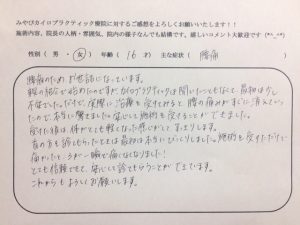 みやびカイロプラクティック療院に対するご感想をよろしくお願いいたします!!
施術内容、院長の人柄・雰囲気、院内の様子なんでも結構です。嬉しいコメント大歓迎です (*^_^*)
性別 ( 男 ・ 女 ) 年齢 ( 16 才 ) 主な症状 ( 腰痛 )
腰痛のためお世話になっています。
親の紹介で始めたのですが、カイロプラクティックは聞いたこともなくて最初は少し
不安でした。だけど、実際に治療を受けてみると腰の痛みがすぐに消えてい
たので、本当に驚きました。安心して施術を受けることができました。
受けた後は体がとても軽くなった感じがして、すっきりします。
首の方も診てもらったときは最初は本当にびっくりしました。施術を受けただけで
痛かったところが一瞬で痛くなくなりました!
とても信頼できて、安心して診てもらうことができています。
これからもよろしくお願いします。